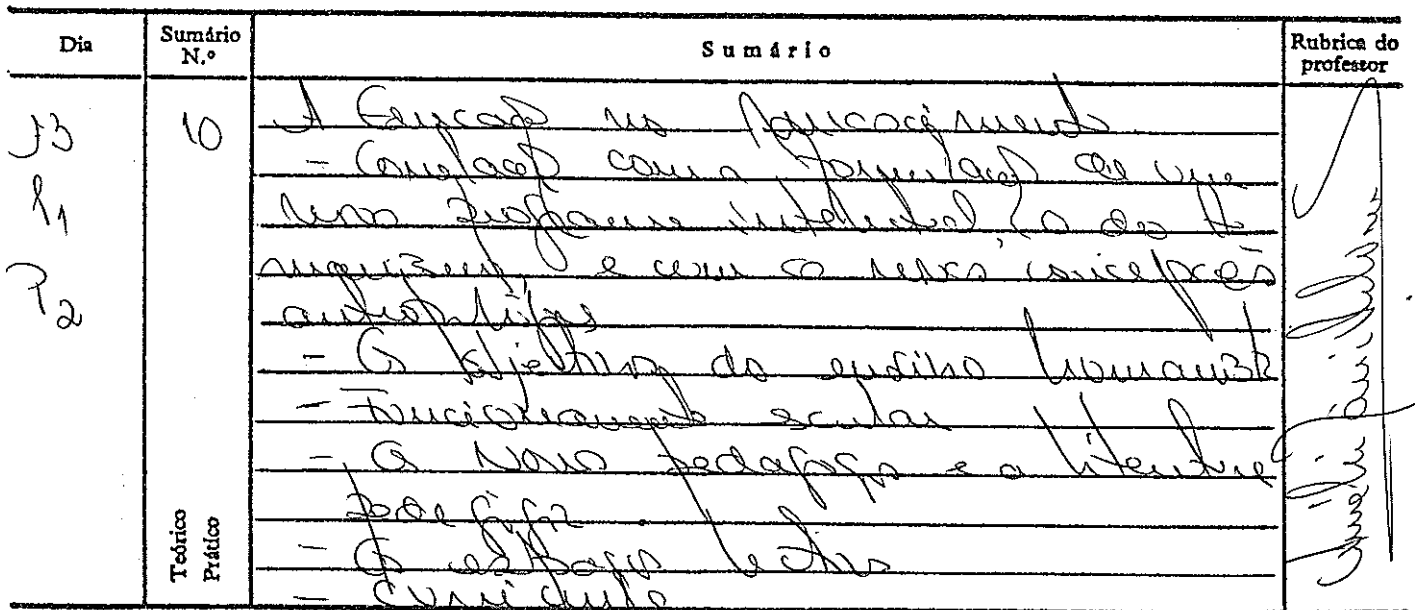 Dia
Sumário N.º
Sumário
Rubrica do professor
13
10
A Educação no Renascimento
- Correlação com a formulação de um
novo programa intelectual, o do
e com as novas concepções
antropológicas
- Os objectivos do ensino humanista
- Funcionamento escolar
- Os novos pedagogos e a literatura
pedagógica
- Os espaços lectivos
- Curriculo
P1
P2
Teórico
Prático